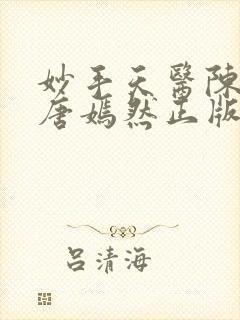 妙手天醫陳
唐嫣然正版
呂清海